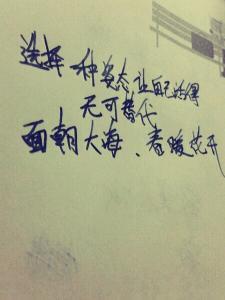 选择一种姿态让自己活得
无可替代
面朝大海、春暖花开